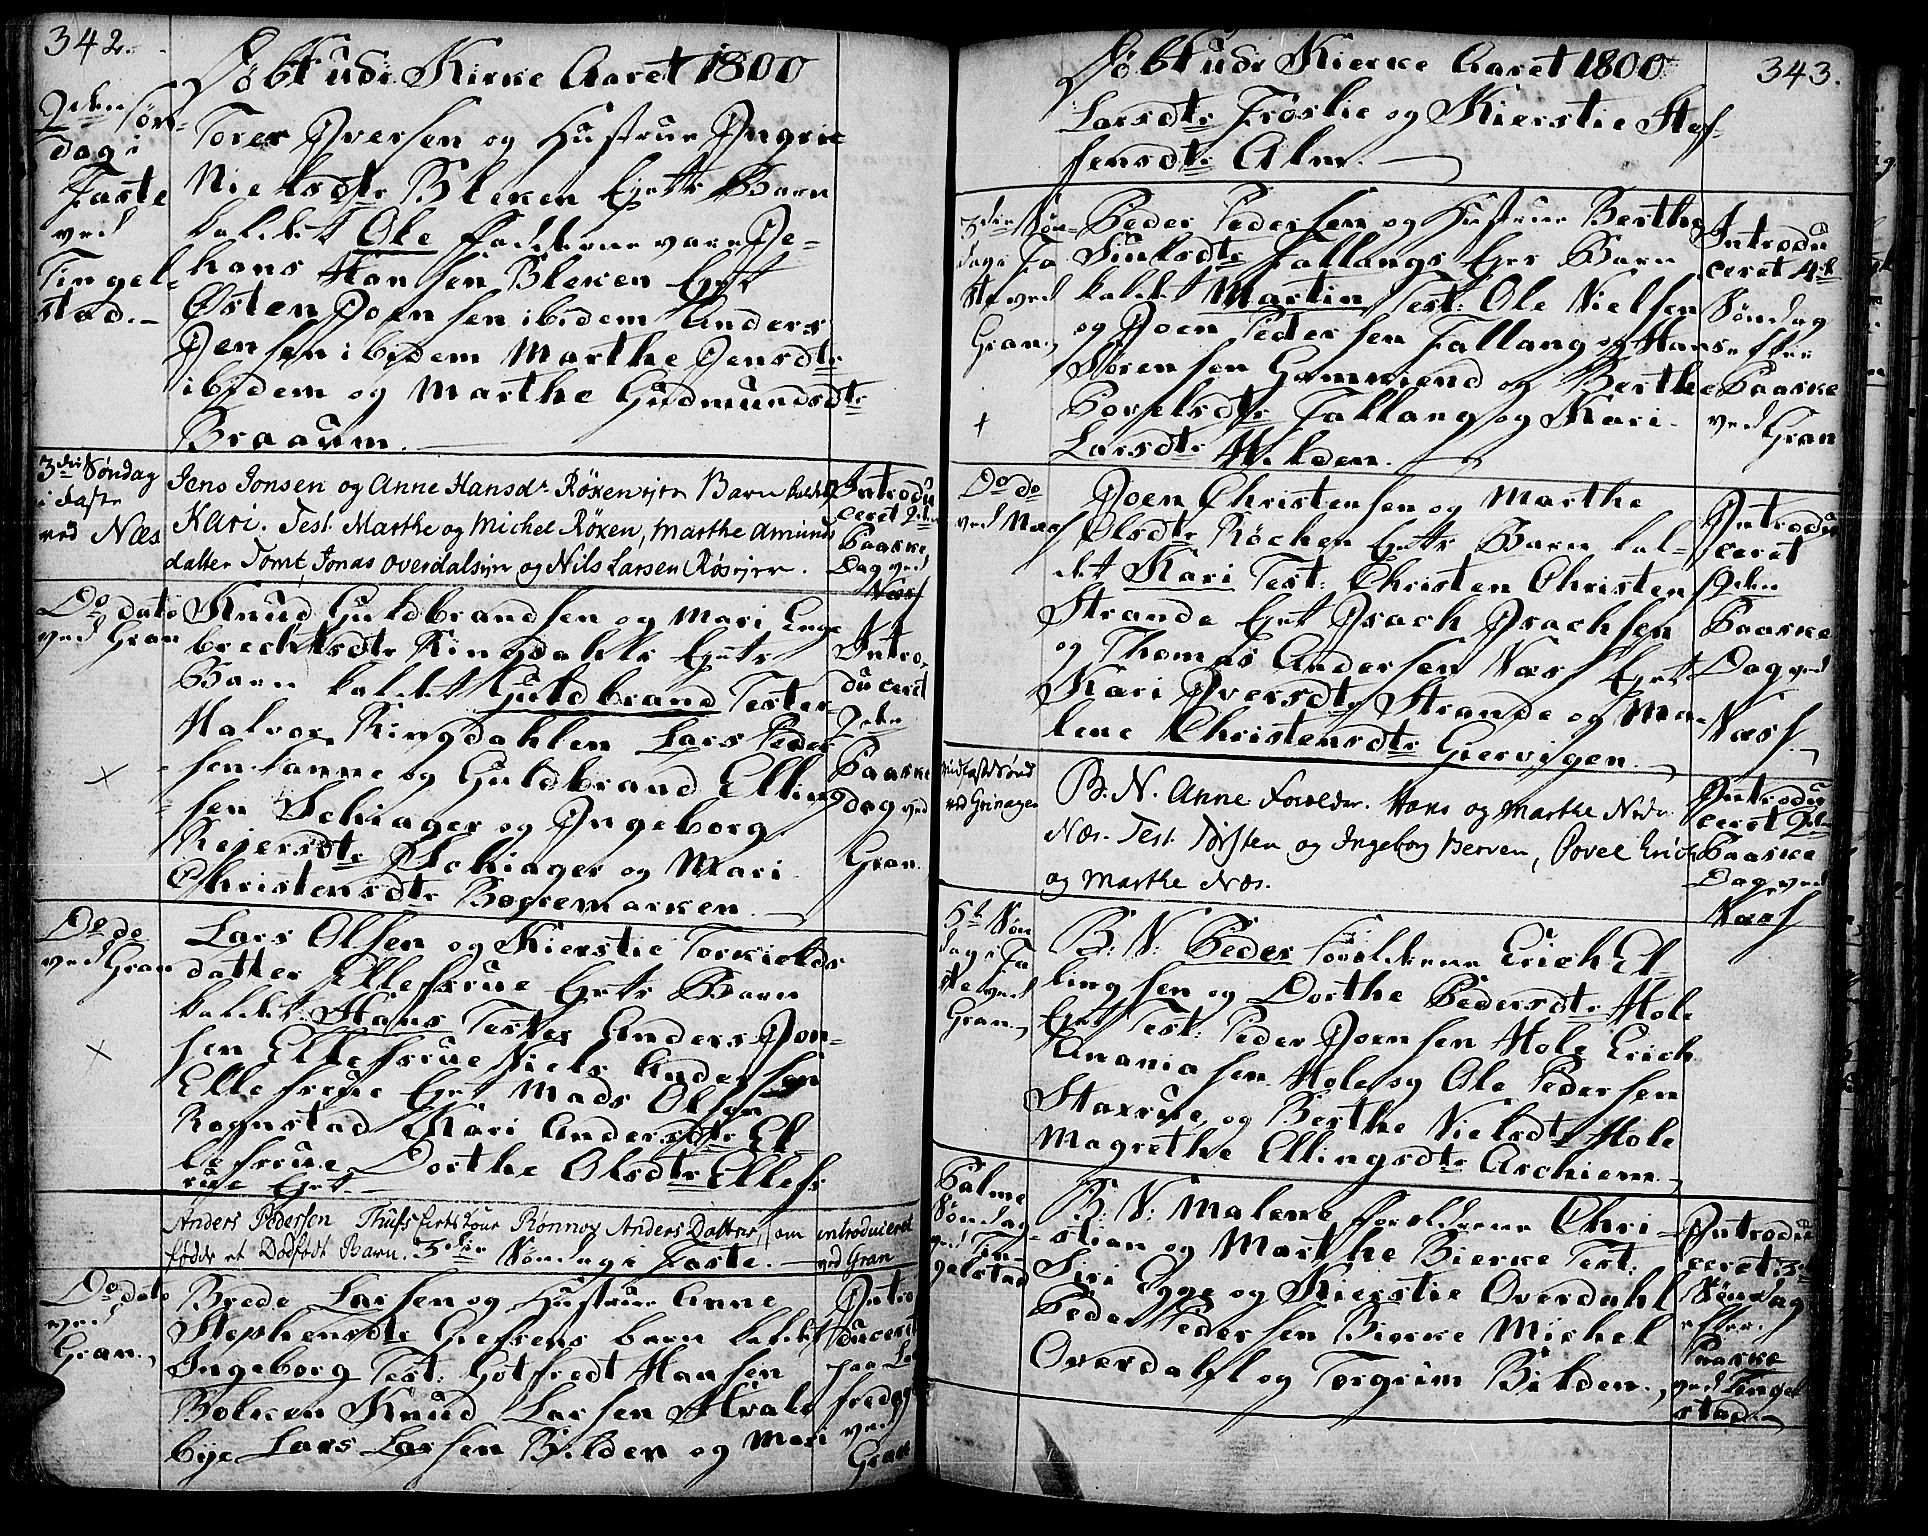 342.
Döbt udi Kirke Aaret 1800
2den Søn-
dag i
Faste
ved
Tingel-
stad.
Tores Iversen og Hustrue Ingrie
Nielsdtr Bleken Ejetts Barn
kaldet Ole Fadderne vare Jo-
hans Hansen Bleken Ejet
Østen Joensen ibidem Anders
Jensen ibidem Marthe Jensdtr
ibidem og Marthe Gudmundsdtr
Braaum.
3die Søndag
i Faste
ved Næs
Jens Jonsen og Anne Hansdr Röxenejer Barn kaldet
Kari. Test. Marthe og Michel Röxen, Marthe Amunds
datter Tomt Jonas Overdalsejer og Nils Larsen Røsejer.
Introdu
ceret 2den
Paaske
Dag ved
Næss
Do dato
ved Gran
Knud Guldbrandsen og Mari Enge
brechtsdtr Ringdahls Ejets
Barn kaldet Guldbrand Tester
Halvor Ringdahlen Lars Peder
sen Sanne og Guldbrand Elling
sen Schiager og Ingeborg
Rejersdtr Schiager og Mari
Christensdtr Bogremarken
Intro
duceret
2den
Paaske
dag ved
Gran.
×
Do do
ved Gran
Lars Olsen og Kierstie Torkields
datter Ellefsrue Ejets Barn
kaldet Hans Tester Anders Jon-
sen Ellefsrue Niels Andersen
Ellefsrue Ejet Mads Olsen
Rognstad Mari Andersdtr El-
lefsrue Dorthe Olsdtr Ellefs
rue Ejet.
×
Anders Pedersen Thufs Ejets Kone Rønnoy Anders Datter, som
føder et Dødfødt Barn. 3die Søndag i Faste.
introduceret
ved Gran
Do dato
ved
Gran.
Brede Larsen og Hustrue Anne
Stephensdtr Giefsens barn kaldet
Ingeborg Test: Gotfredt Hansen
Bolken Knud Larsen Hvale
bye Lars Larsen Bilden og Mari
Intro
duceret
paa
fredag
ved
Gran
343.
Döbt udi Kierke Aaret 1800
Larsdtr Frøslie og Kierstie Stef-
fensdtr Alm.
3die Søn-
dag i Fa
ste ved
Gran.
+
Peder Pedersen og Hustrue Berthe
Fallangs Ejer Barn
kaldet Martin Test: Ole Nielsen
og Joen Pedersen Fallang og Hans
Sørensen Gammiend og Berthe
Povelsdtr Fallang og Kari
Larsdtr Hilden.
Introdu
ceret 4de
Søndag
efter
Paaske
ved Gran
Do do
ved Næs
Joen Christensen og Marthe
Olsdtr Røchen Ejets Barn kal-
det Kari Test: Christen Christensen
Strande Ejet Isach Isachsen
og Thomas Andersen Næss Ejet
Kari Iversdtr Strande og Ma-
lene Christensdtr Giervigen.
Introdu
ceret
2den
Paaske
Dag ved
Næss
Midfaste Sønd
ved Grinager
B. N. Anne Forælder. Hans og Marthe Nedre
Næs. Test. Törsten og Ingeborg Berven, Povel Erich
og Marthe Næs.
Introdu
ceret 2den
Paaske
Dag ved
Næss
5te Søn
dag i Fa
ste ved
Gran.
B: N: Peder Forældrene Erich El-
lingsen og Dorthe Pedersdtr Hole
Ejet Test: Peder Joensen Hole Erich
Ananiasen Hole og Ole Pedersen
Staxrue, og Berthe Nielsdtr Hole
Magrethe Ellingsdtr Aschiem.
Palme
Søndag
ved Tin
gelstad
B: N: Malene forældrene Chri-
stian og Marthe Bierke Test:
Siri Egge og Kierstie Overdahl
Peder Pedersen Bierke Michel
Overdahl og Torgrim Bilden.
Introdu
ceret 3die
Søndag
efter
Paaske
ved Tingel
stad.